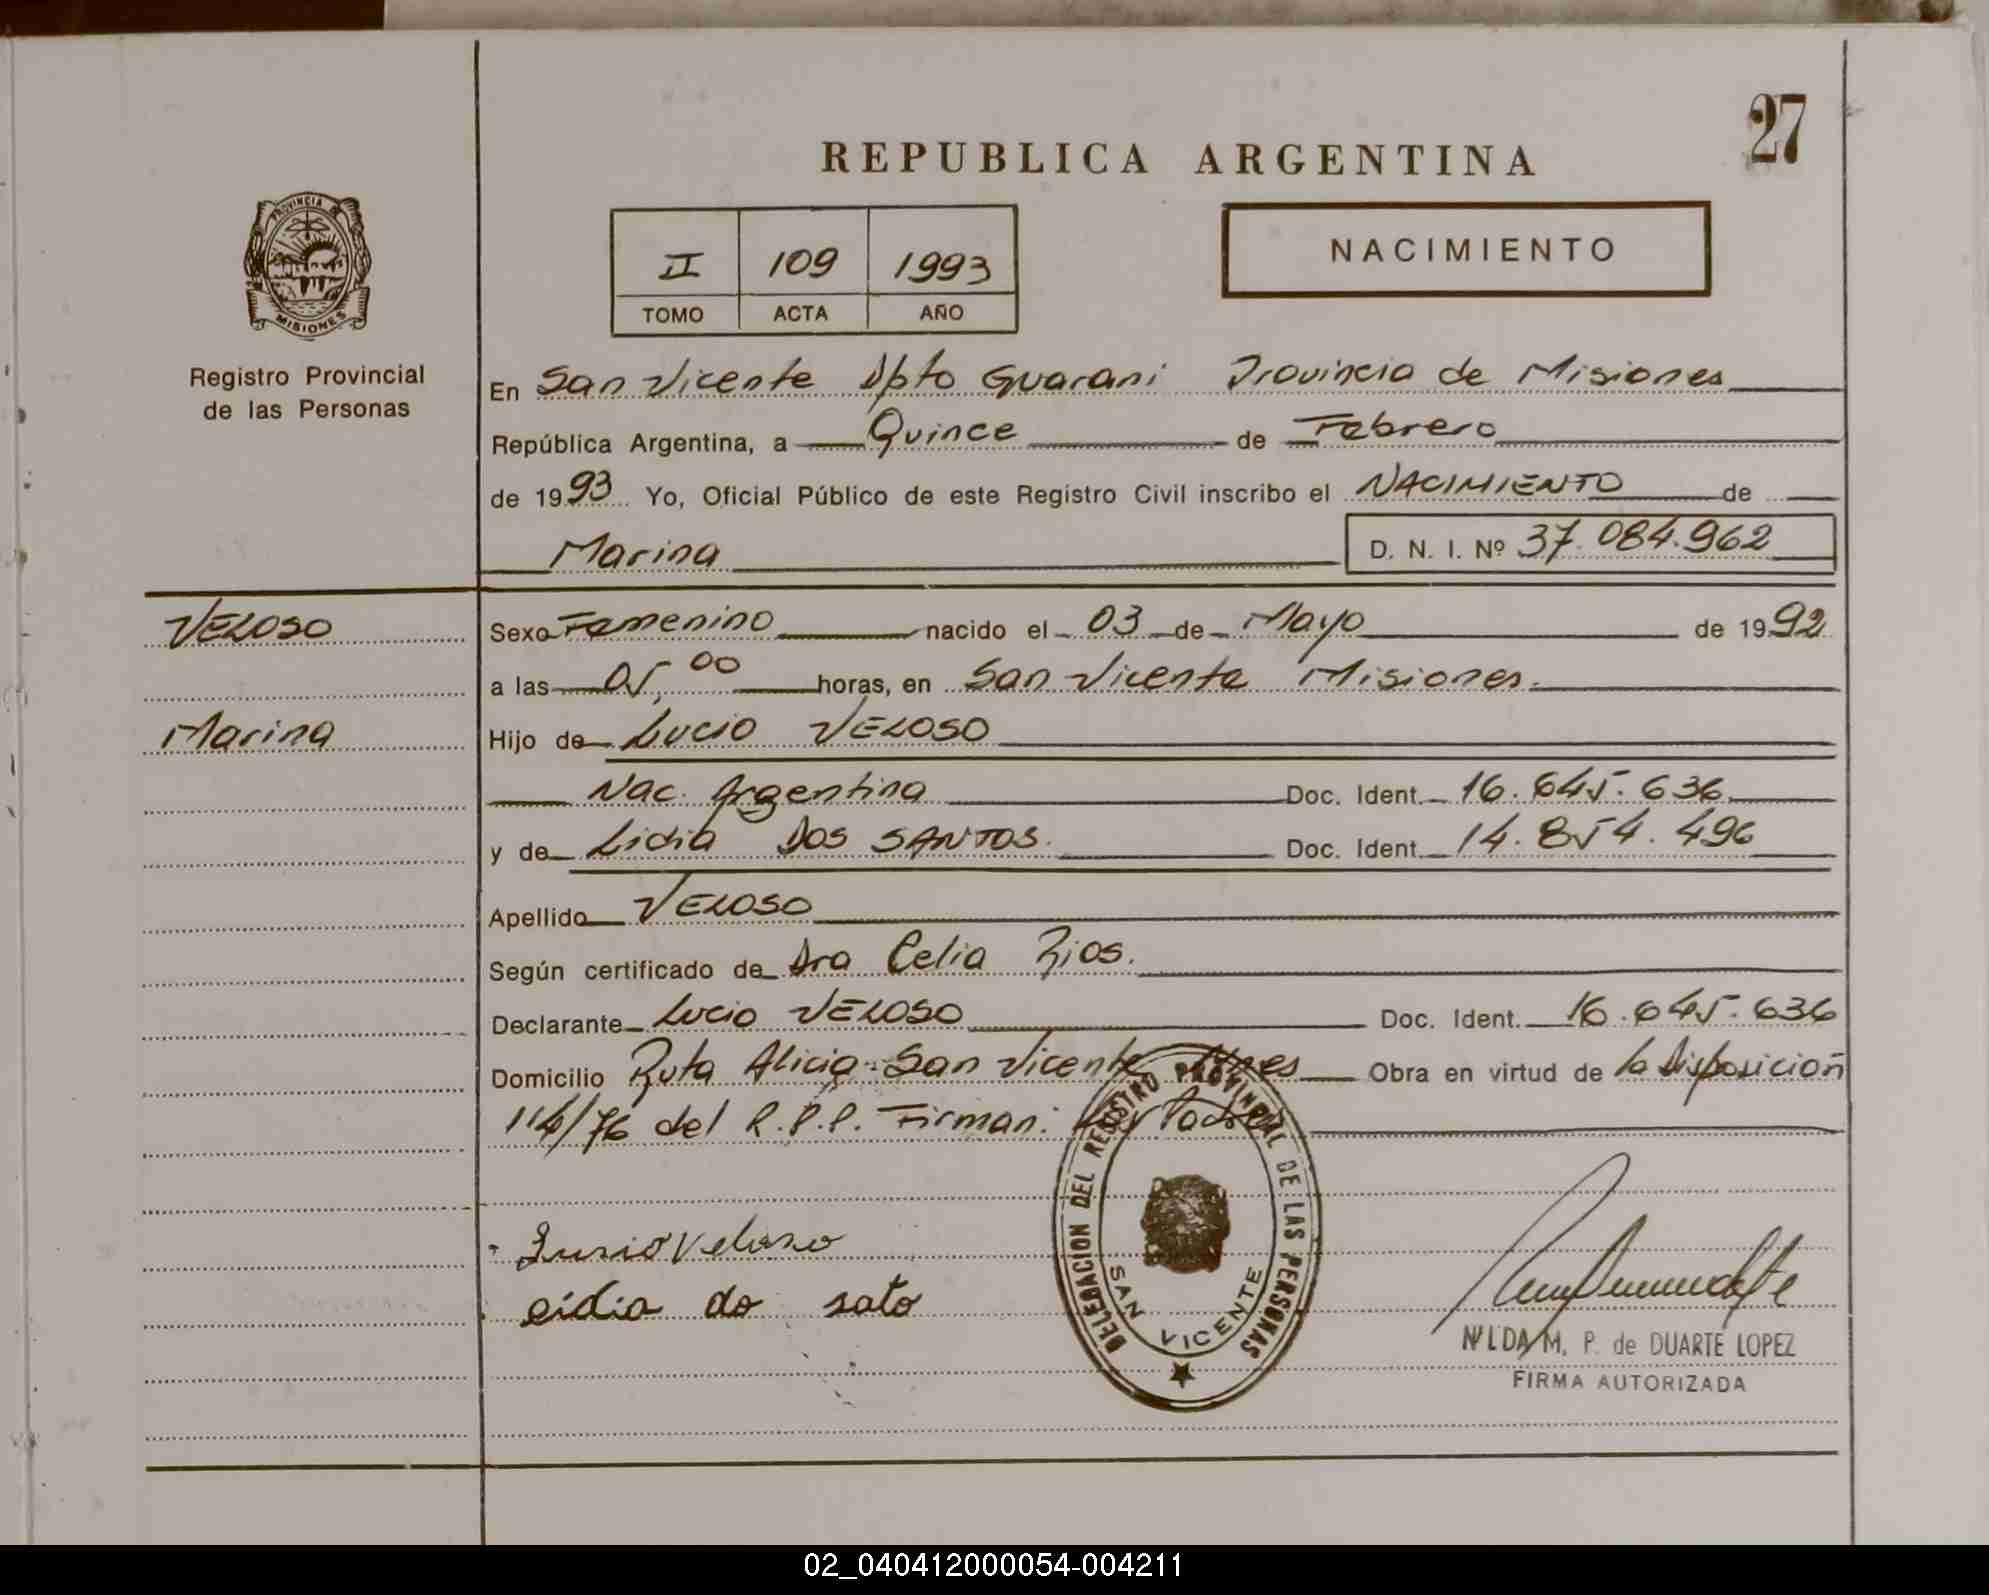 27
REPUBLICA ARGENTINA
PROVINCIA DE
MISIONES
II 109 1993
TOMO ACTA AÑO
NACIMIENTO
Registro Provincial
de las Personas
En San Vicente Dpto Guarani Provincia de Misiones
República Argentina, a Quince de Febrero
de 1993 Yo, Oficial Público de este Registro Civil inscribo el NACIMIENTO de
Marina D. N. I. Nº 37.084.962
VELOSO
Marina
Sexo Femenino nacido el 03 de Mayo de 1992
a las 05,00 horas, en San Vicente Misiones.
Hijo de Lucio VELOSO
Nac. Argentina Doc. Ident. 16.645.636
y de Lidia DOS SANTOS. Doc. Ident. 14.854.496
Apellido VELOSO
Según certificado de Dra Celia Rios.
Declarante Lucio VELOSO Doc. Ident. 16.645.636
Domicilio Ruta Alicia-San Vicente Mnes Obra en virtud de la Disposición
114/76 del R.P.P. Firman: los Padres
Lusio Veloso
eidia do sato
DELEGACION DEL REGISTRO PROVINCIAL DE LAS PERSONAS
SAN VICENTE
NILDA M. P. de DUARTE LOPEZ
FIRMA AUTORIZADA
02_040412000054-004211